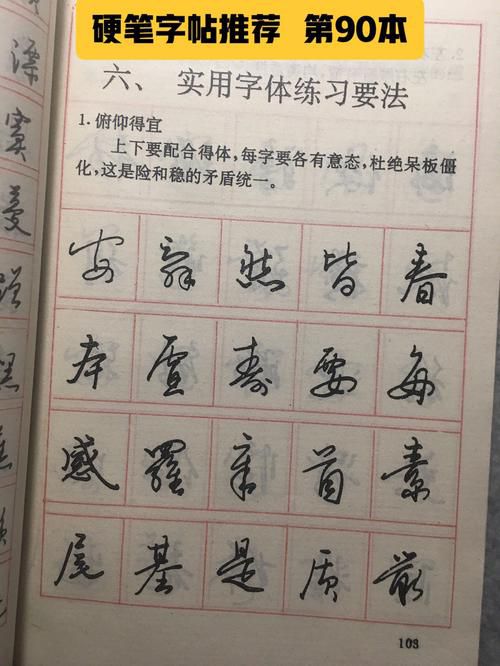 硬笔字帖推荐 第90本
六、 实用字体练习要法
1. 俯仰得宜
上下要配合得体，每字要各有意态，杜绝呆板僵
化，这是险和稳的矛盾统一。
安 然 皆 春
寿 要 每
感 羅 章 首 素
尾 基 是 质 嚴
103